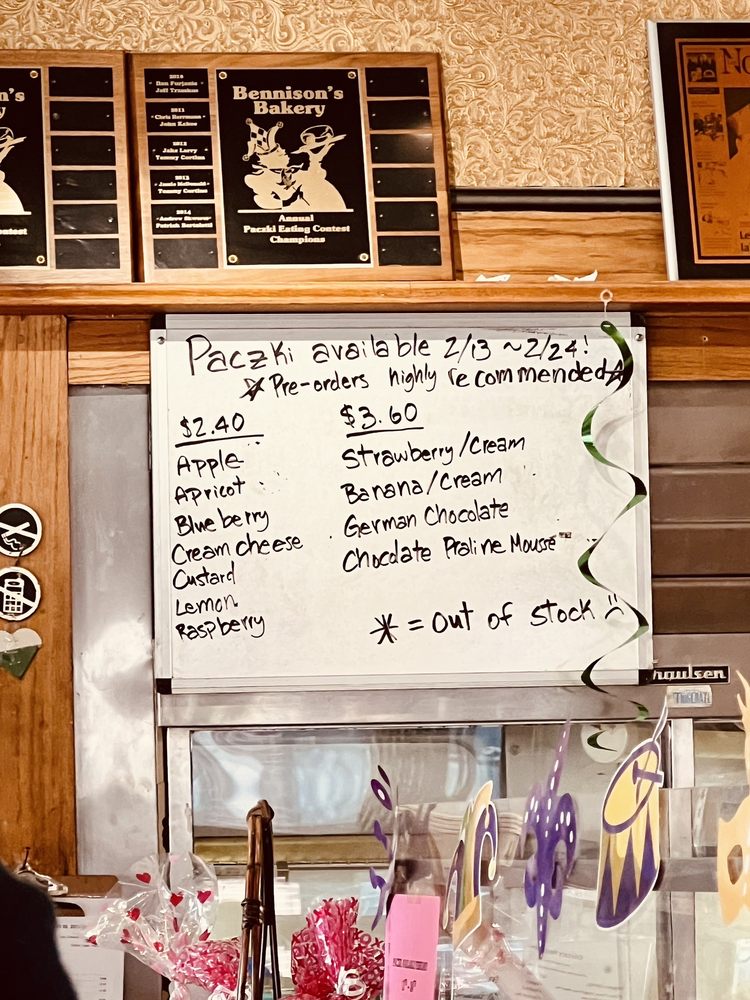 n's
y
ontest
2010
Dan Furjanic
Jeff Trzaskus
2011
Chris Herrmann
John Kehoe
2012
Jake Lavry
Tommy Cortina
2013
Jamie McDonald
Tommy Cortina
2014
Patrick Bertoletti
Bennison's
Bakery
Annual
Paczki Eating Contest
Champions
No
Le
la
Paczki available 2/13 ~ 2/24!
Pre-orders highly recommended
$2.40
Apple
Apricot
Blueberry
Cream cheese
Custard
Lemon
Raspberry
$3.60
Strawberry/Cream
Banana/Cream
German Chocolate
Chocolate Praline Mousse
* = Out of stock :(
haulsen